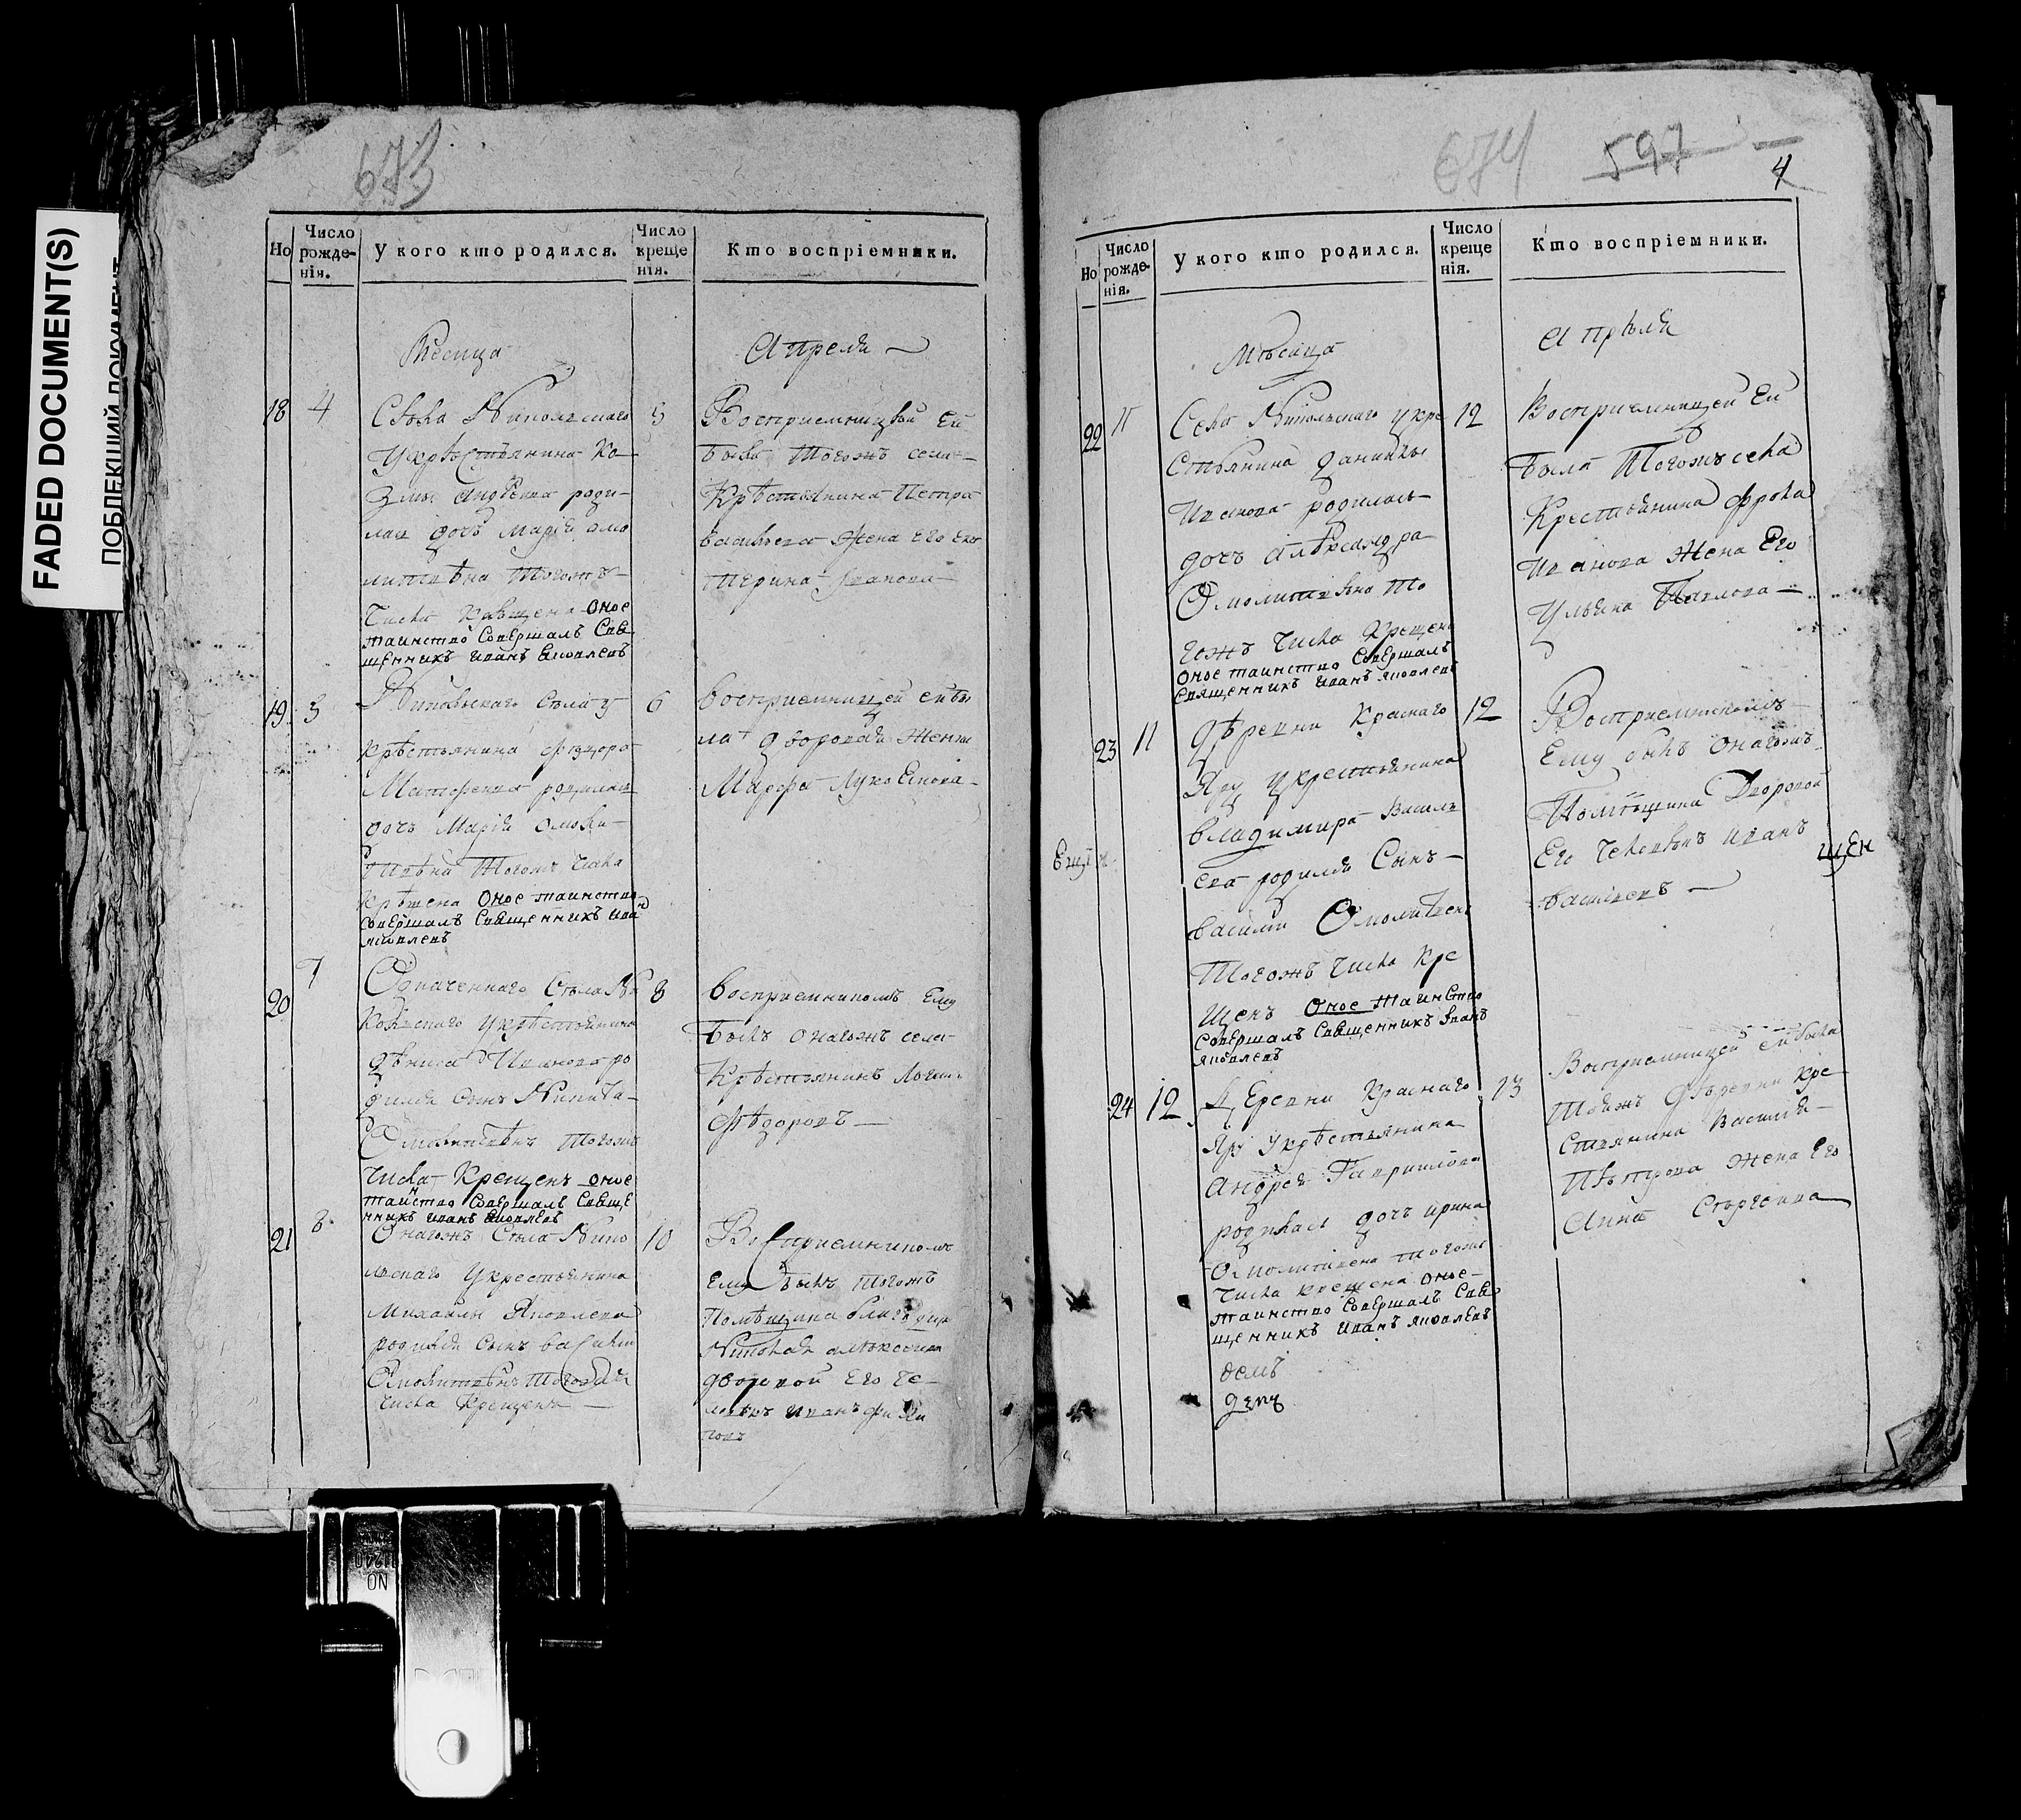 FADED DOCUMENT(S)
ПОБЛЕКШИЙ ДОКУМЕНТ
673
Но
Число рожденія.
У кого кто родился.
Число крещенія.
Кто воспріемники.
Месица
Апреля
18 4 Села Никольскаго 5
Укрѣстьянина Ко-
змы Андрѣева роди-
лась дочь Марія омо
литвѣна Тогожъ
Числа Крещена Оное
таинство Совершалъ Свя
щенникъ Иванъ Яковлевъ
Восприемницей Ей
была Тогожъ села
Крѣстьянина Петра
васильева Жена Его Ека
терина Иванова
19 5 Никольскаго Села у 6
крѣстьянина Фядора
Матфеева родилась
дочь Марія Омоли-
твѣна Тогожъ Числа
Крѣщена Оное таинство
Совершалъ Священникъ Иванъ
яковлевъ
восприемницей ей бы
ла дворовая Женка
Марфа Лукоянова
20 7 Означеннаго Села Ни 8
кольскаго Укрѣстьянина
дѣниса Иванова ро
дился Сынъ Никита
Омолитвѣнъ Тогожъ
Числа Крещенъ оное
таинство Совершалъ Свяще
нникъ Иванъ Яковлевъ
восприемникомъ Ему
Былъ онагожъ села
Крѣстьянинъ
Фѣдоровъ
21 8 Онагожъ Села Нико 10
льскаго Укрестьянина
Михаилы Яковлева
родился Сынъ василий
Омолитвѣнъ Тогожъ
Числа Крещенъ
Восприемникомъ
Ему Былъ Тогожъ
Помѣщика
Николая
дворовой Его Че-
ловѣкъ Иванъ Фили
повъ
674
597
4
Но
Число рожденія.
У кого кто родился.
Число крещенія.
Кто воспріемники.
Мѣсица
Апрѣля
22 11 Села Никольскаго укре 12
Стьянина данилы
Иванова родилась
дочь Александра
Омолитвѣна То
гожъ Числа Крещена
Оное таинство Совершалъ
Священникъ Иванъ яковлевъ
Восприемницей Ей
была Тогожъ села
Крестьянина Фрола
Иванова Жена Его
Ульяна Павлова
23 11 дѣревни Краснаго 12
Яру Укрестьянина
владимира Василь
ева родился Сынъ
василий Омолитвенъ
Тогожъ Числа Кре
щенъ Оное Таинство
Совершалъ Священникъ Иванъ
яковлевъ
Восприемникомъ
Ему былъ онагожъ
Помѣщика Дворовой
Его Человѣкъ Иванъ
васильевъ
щен
24 12 Деревни Краснаго 13
Яру Укрѣстьянина
Андрея Гаврилова
родилась дочь ирина
Омолитвена Тогожъ
Числа крещена Оное
таинство Совершалъ Свя
щенникъ Иванъ яковлевъ
Восприемницей ей была
Тояжъ дѣревни кре
стьянина Василия
Пѣтрова Жена Его
Анна Сергеевна